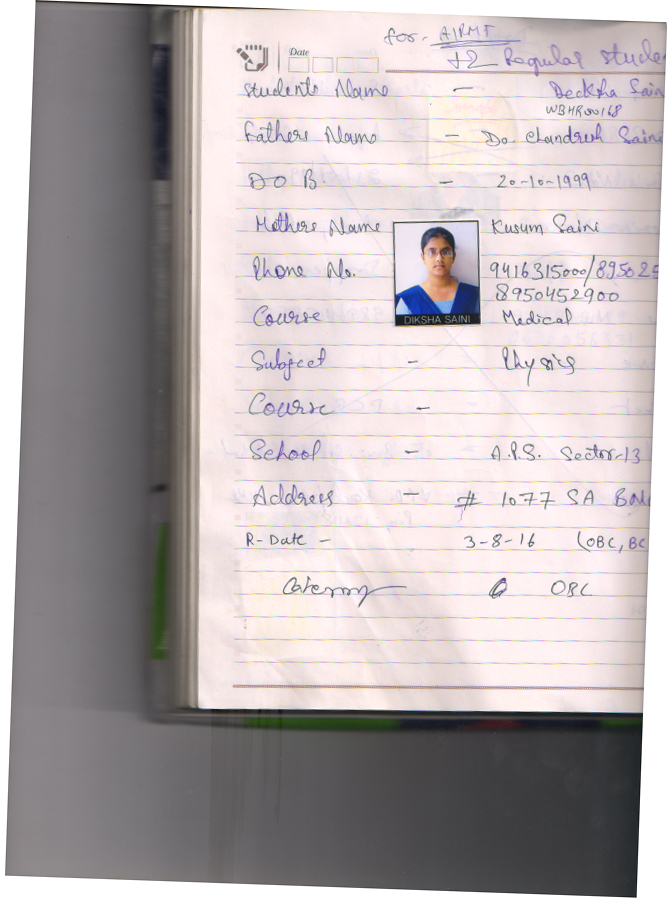 for. AIPMT
Date
+2 Regular Stude
Students Name - Deeksha Sain
WBHR00168
Fathers Name - Dr. Chandresh Saini
D O B - 20-10-1999
Mothers Name Kusum Saini
Phone No. 9416315000/89502
8950452900
Course Medical
DIKSHA SAINI
Subject - Physics
Course -
School - A.P.S. Sector-13
Address - # 1077 SA
R-Date - 3-8-16 (OBC, BC
Category OBC